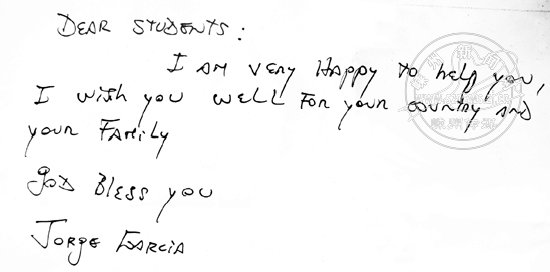 DEAR STUDENTS:
I AM VERY HAPPY TO help you,
I wish you well For your country AND
your FAMily
GOD Bless you
JORGE GARCIA